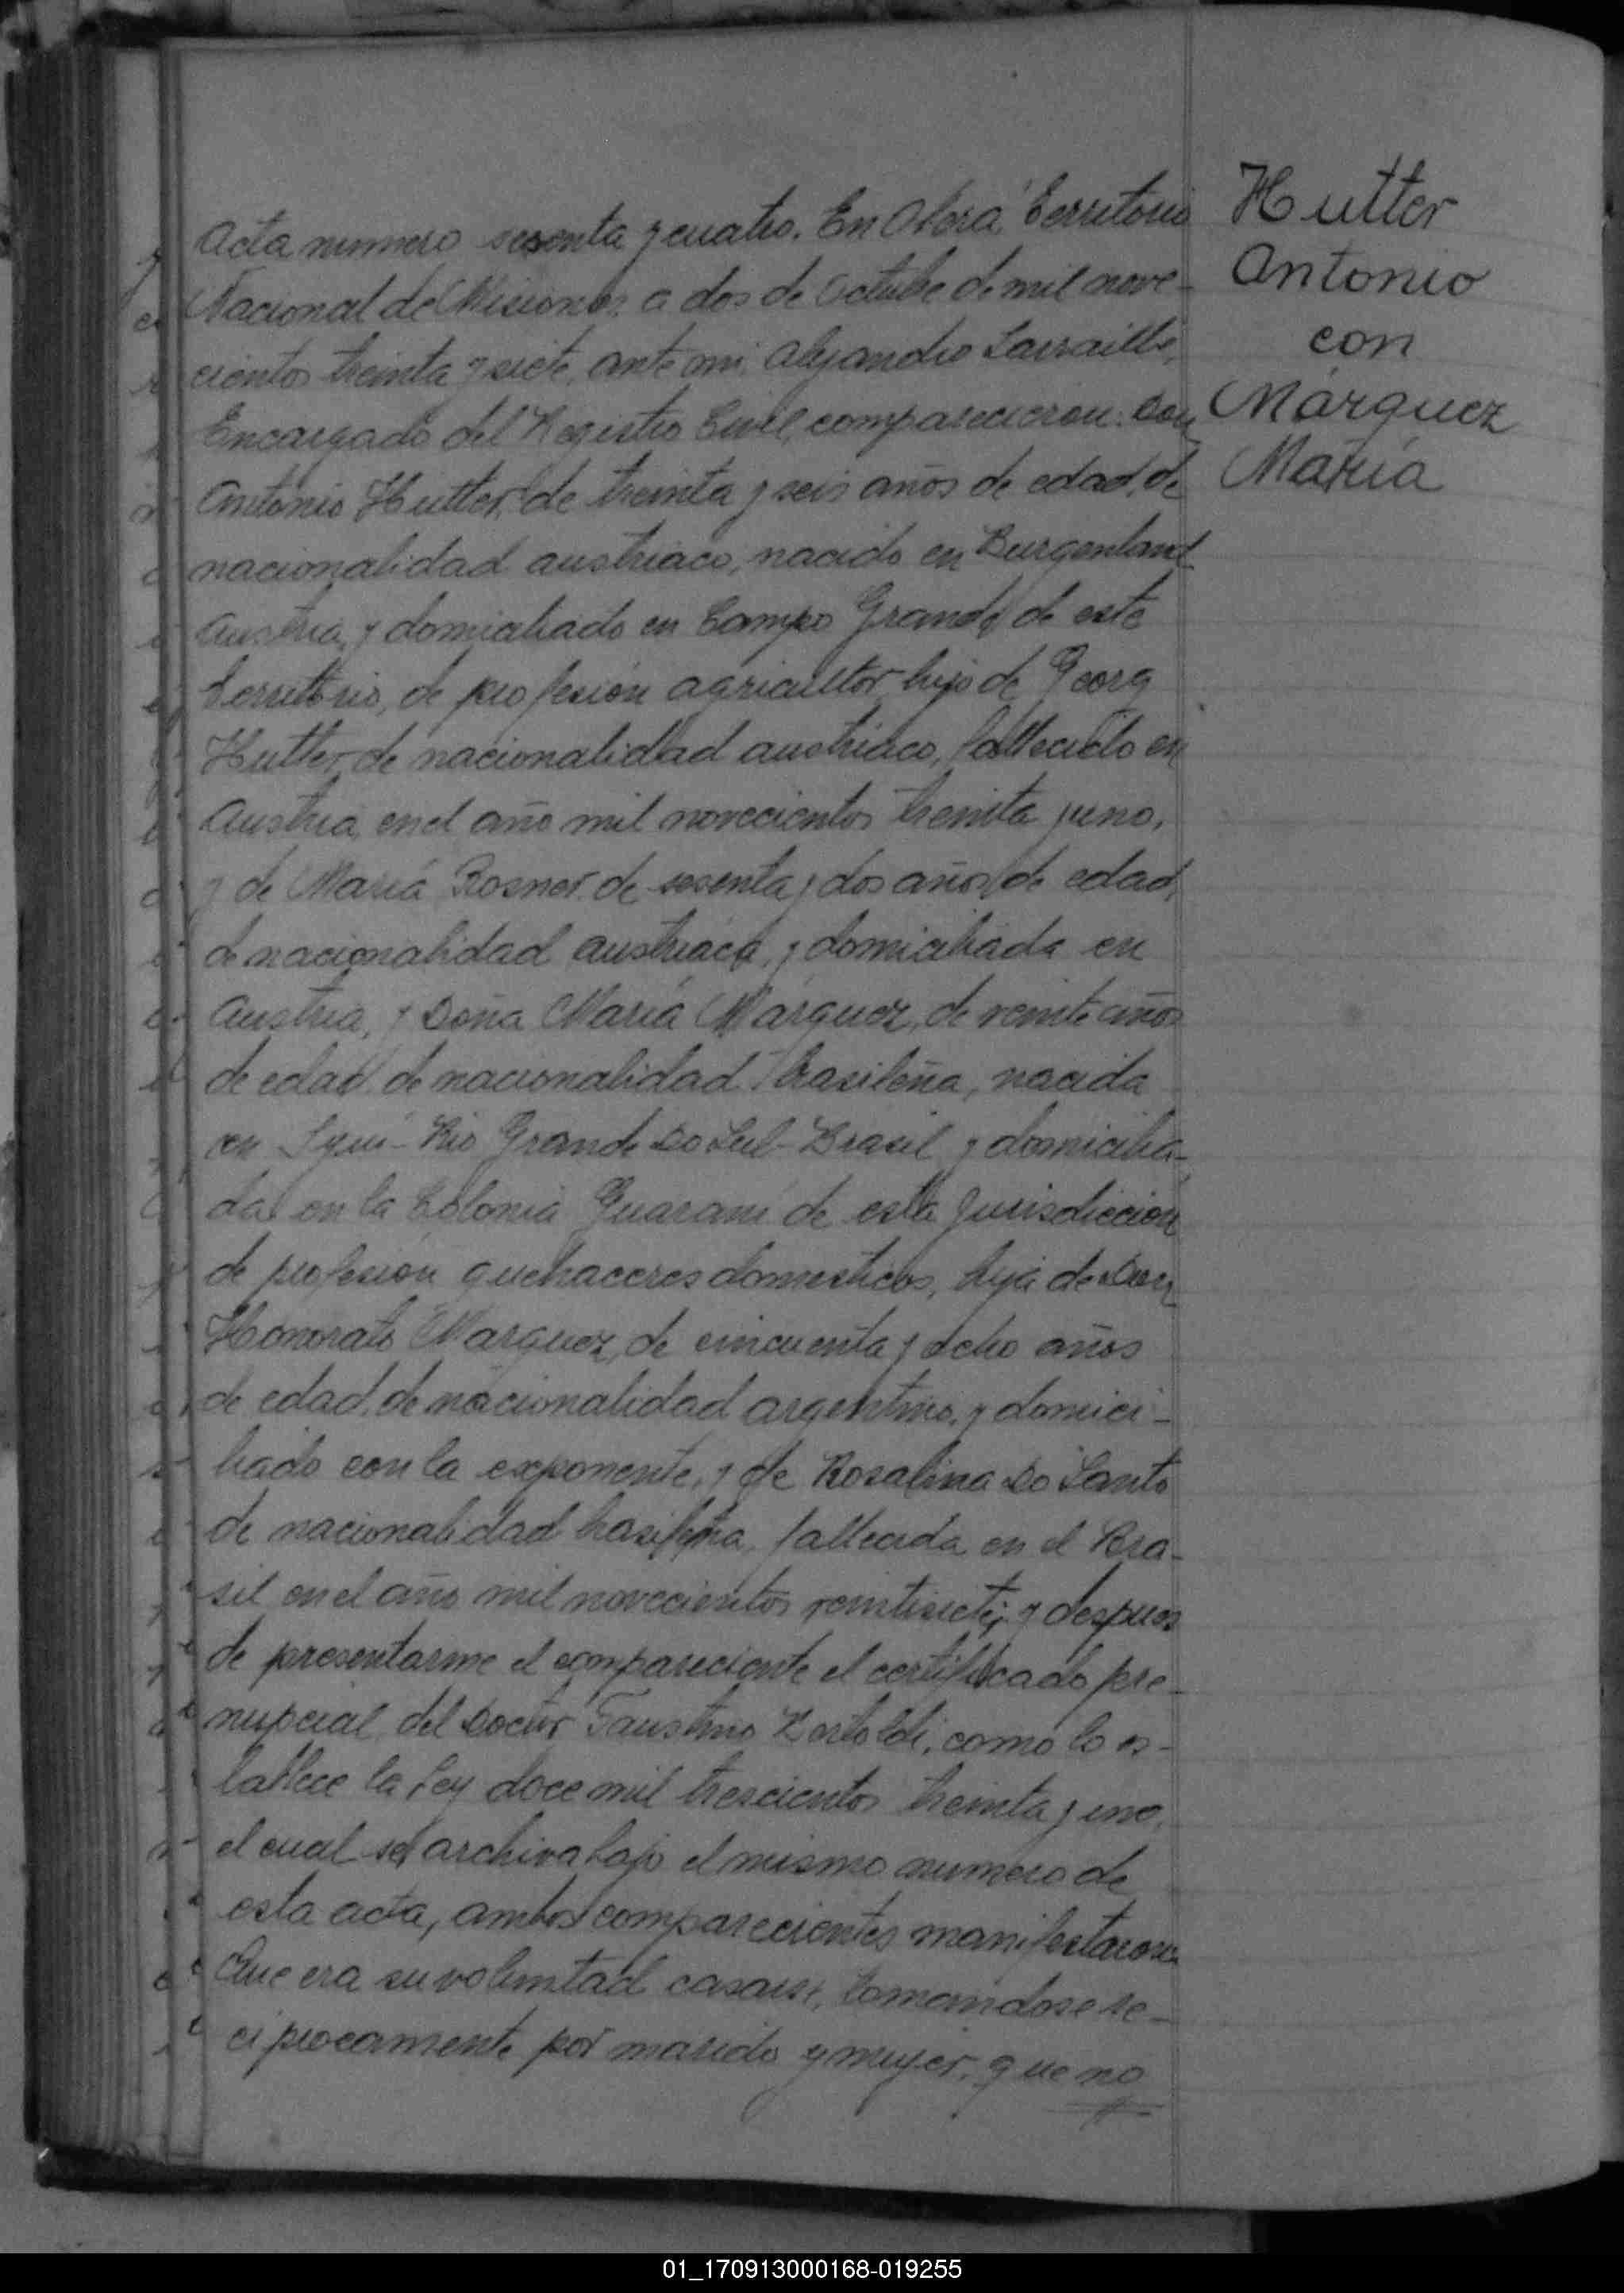 Hutter
Antonio
con
Márquez
María
Acta numero sesenta y cuatro. En Oberá, Territorio
Nacional de Misiones, a dos de Octubre de mil nove-
cientos treinta y siete, ante mi, Alejandro
Encargado del Registro Civil, comparecieron: Don
Antonio Hutter, de treinta y seis años de edad, de
nacionalidad austriaco, nacido en Burgenland
Austria, y domiciliado en Campo Grande de este
territorio, de profesión agricultor, hijo de Georg
Hutter, de nacionalidad austriaco, fallecido en
Austria, en el año mil novecientos treinta y uno,
y de María Rosner, de sesenta y dos años de edad,
de nacionalidad austriaca, y domiciliada en
Austria, y Doña María Márquez, de veinte años
de edad, de nacionalidad brasileña, nacida
en Rio Grande Do Sul - Brasil y domicilia-
da en la Colonia Guaraní de esta Jurisdicción
de profesión quehaceres domesticos, hija de Don
Honorato Marquez, de cincuenta y ocho años
de edad, de nacionalidad argentino, y domici-
liado con la exponente, y de Rosalina Do Santo
de nacionalidad brasileña, fallecida en el Bra-
sil en el año mil novecientos veintisiete; y despues
de presentarme el compareciente el certificado pre-
nupcial, del Doctor Faustino Bertoldi, como lo es-
tablece la Ley doce mil trescientos treinta y uno,
el cual se archiva bajo el mismo numero de
esta acta, ambos comparecientes manifestaron:
Que era su voluntad casarse, tomandose re-
ciprocamente por marido y mujer, que no
01_170913000168-019255